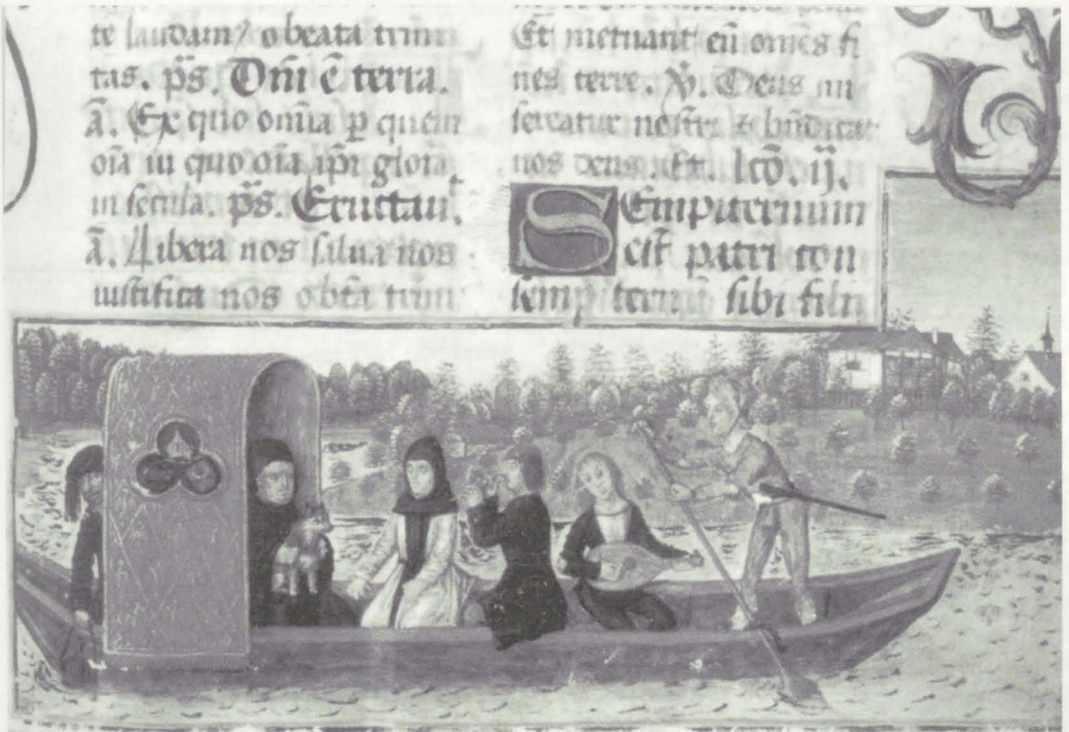 te laudam⁊ o beata trini
tas. p̄s. Dn̄i ē terra.
ā. Ex quo om̄ia ꝑ quem
oīa in quo oīa ip̄i glo͞ia
in secula. p̄s. Eructau̅.
ā. Libera nos salua nos
iustifica nos o bt̄a trini
Et metuant eū om̄es fi
nes terre. ℣. Deus mi
sereatur nostri & bn̄dicat
nos deus. Et. lcō. ij.
SEmpiternum
est patri con
sempiternū sibi filii